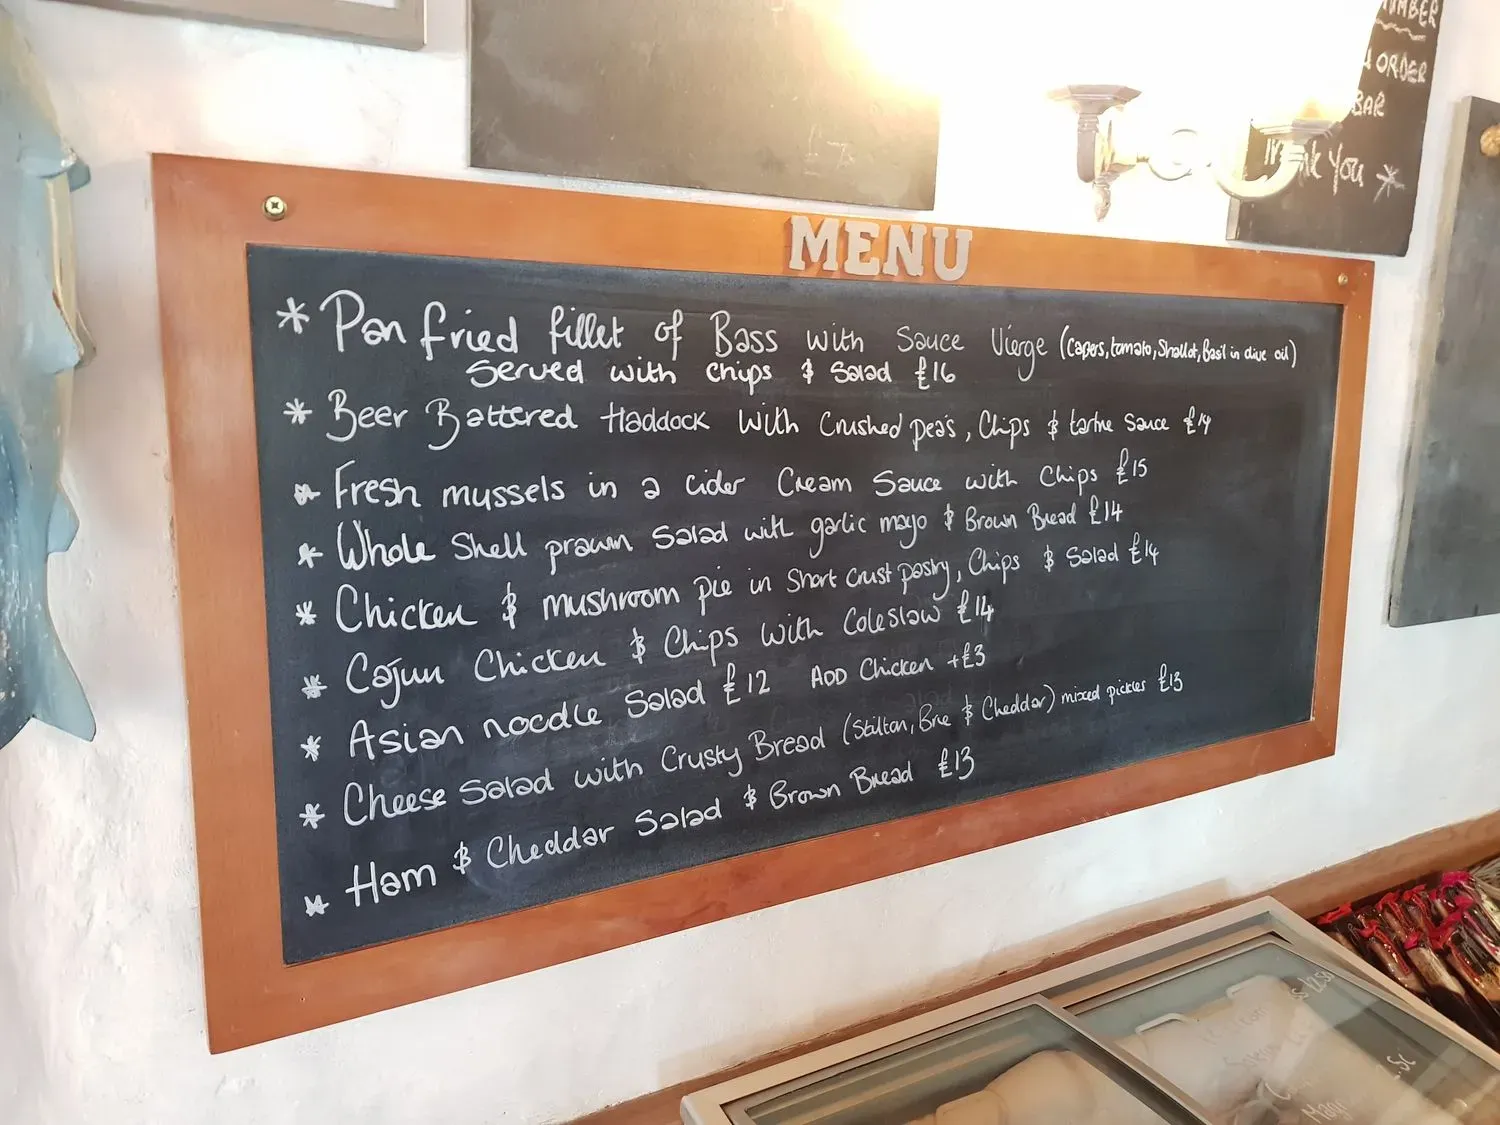 NUMBER
ORDER
BAR
Thank You *
MENU
* Pan fried fillet of Bass with Sauce Vierge (capers, tomato, Shallot, Basil in olive oil)
Served with chips & Salad £16
* Beer Battered Haddock with Crushed peas, Chips & tartre Sauce £14
* Fresh mussels in a cider Cream Sauce with Chips £15
* Whole Shell prawn Salad with garlic mayo & Brown Bread £14
* Chicken & mushroom pie in Short crust pastry, Chips & Salad £14
* Cajun Chicken & Chips with Coleslaw £14
* Asian noodle Salad £12 ADD Chicken +£3
* Cheese Salad with Crusty Bread (Stilton, Brie & Cheddar) mixed pickles £13
* Ham & Cheddar Salad & Brown Bread £13